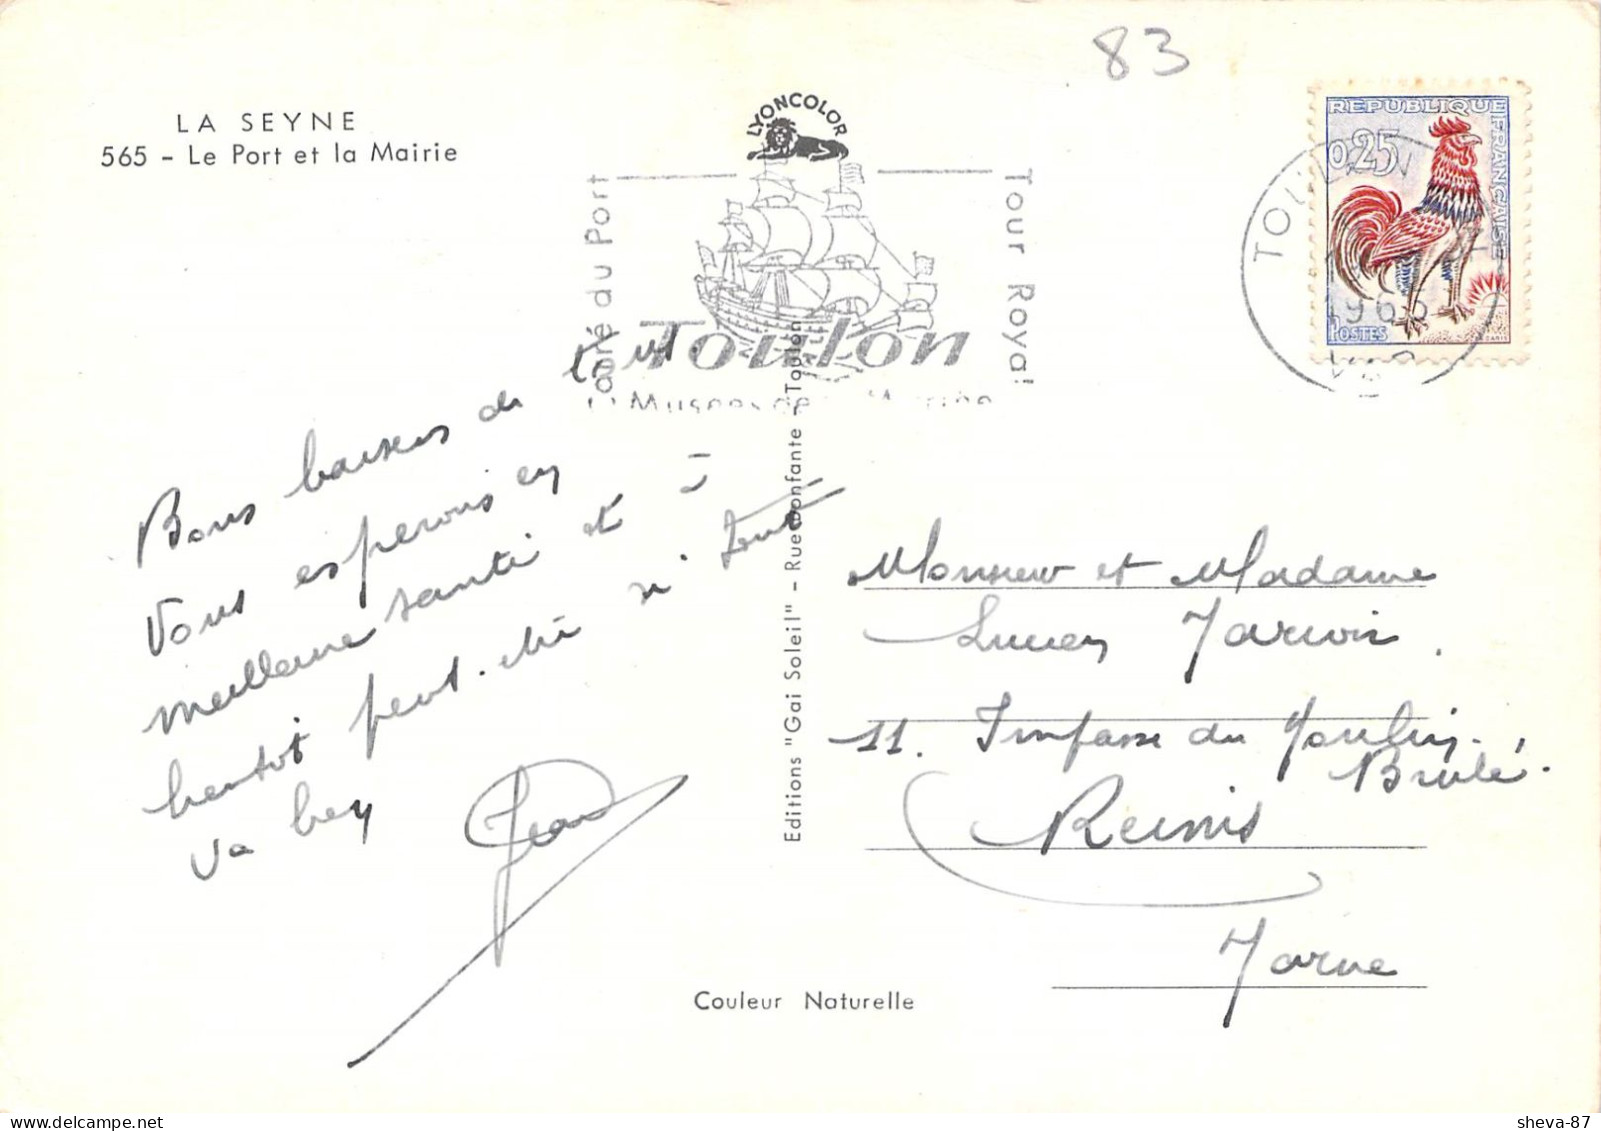 83
LA SEYNE
565 - Le Port et la Mairie
LYONCOLOR
du Port
Tour Royal
Toulon
Musées de
REPUBLIQUE FRANÇAISE
0,25
POSTES
TOULON
196
VAR
Bons baisers de tout.
Vous esperons en
meilleure santé et à
bientot peut-être si tout
va bien
Jean
Editions "Gai Soleil" - Rue Bonfante - Toulon
Monsieur et Madame
Lucien
11. Impasse du Moulin
Brulé.
Reims
Marne
Couleur Naturelle
sheva-87